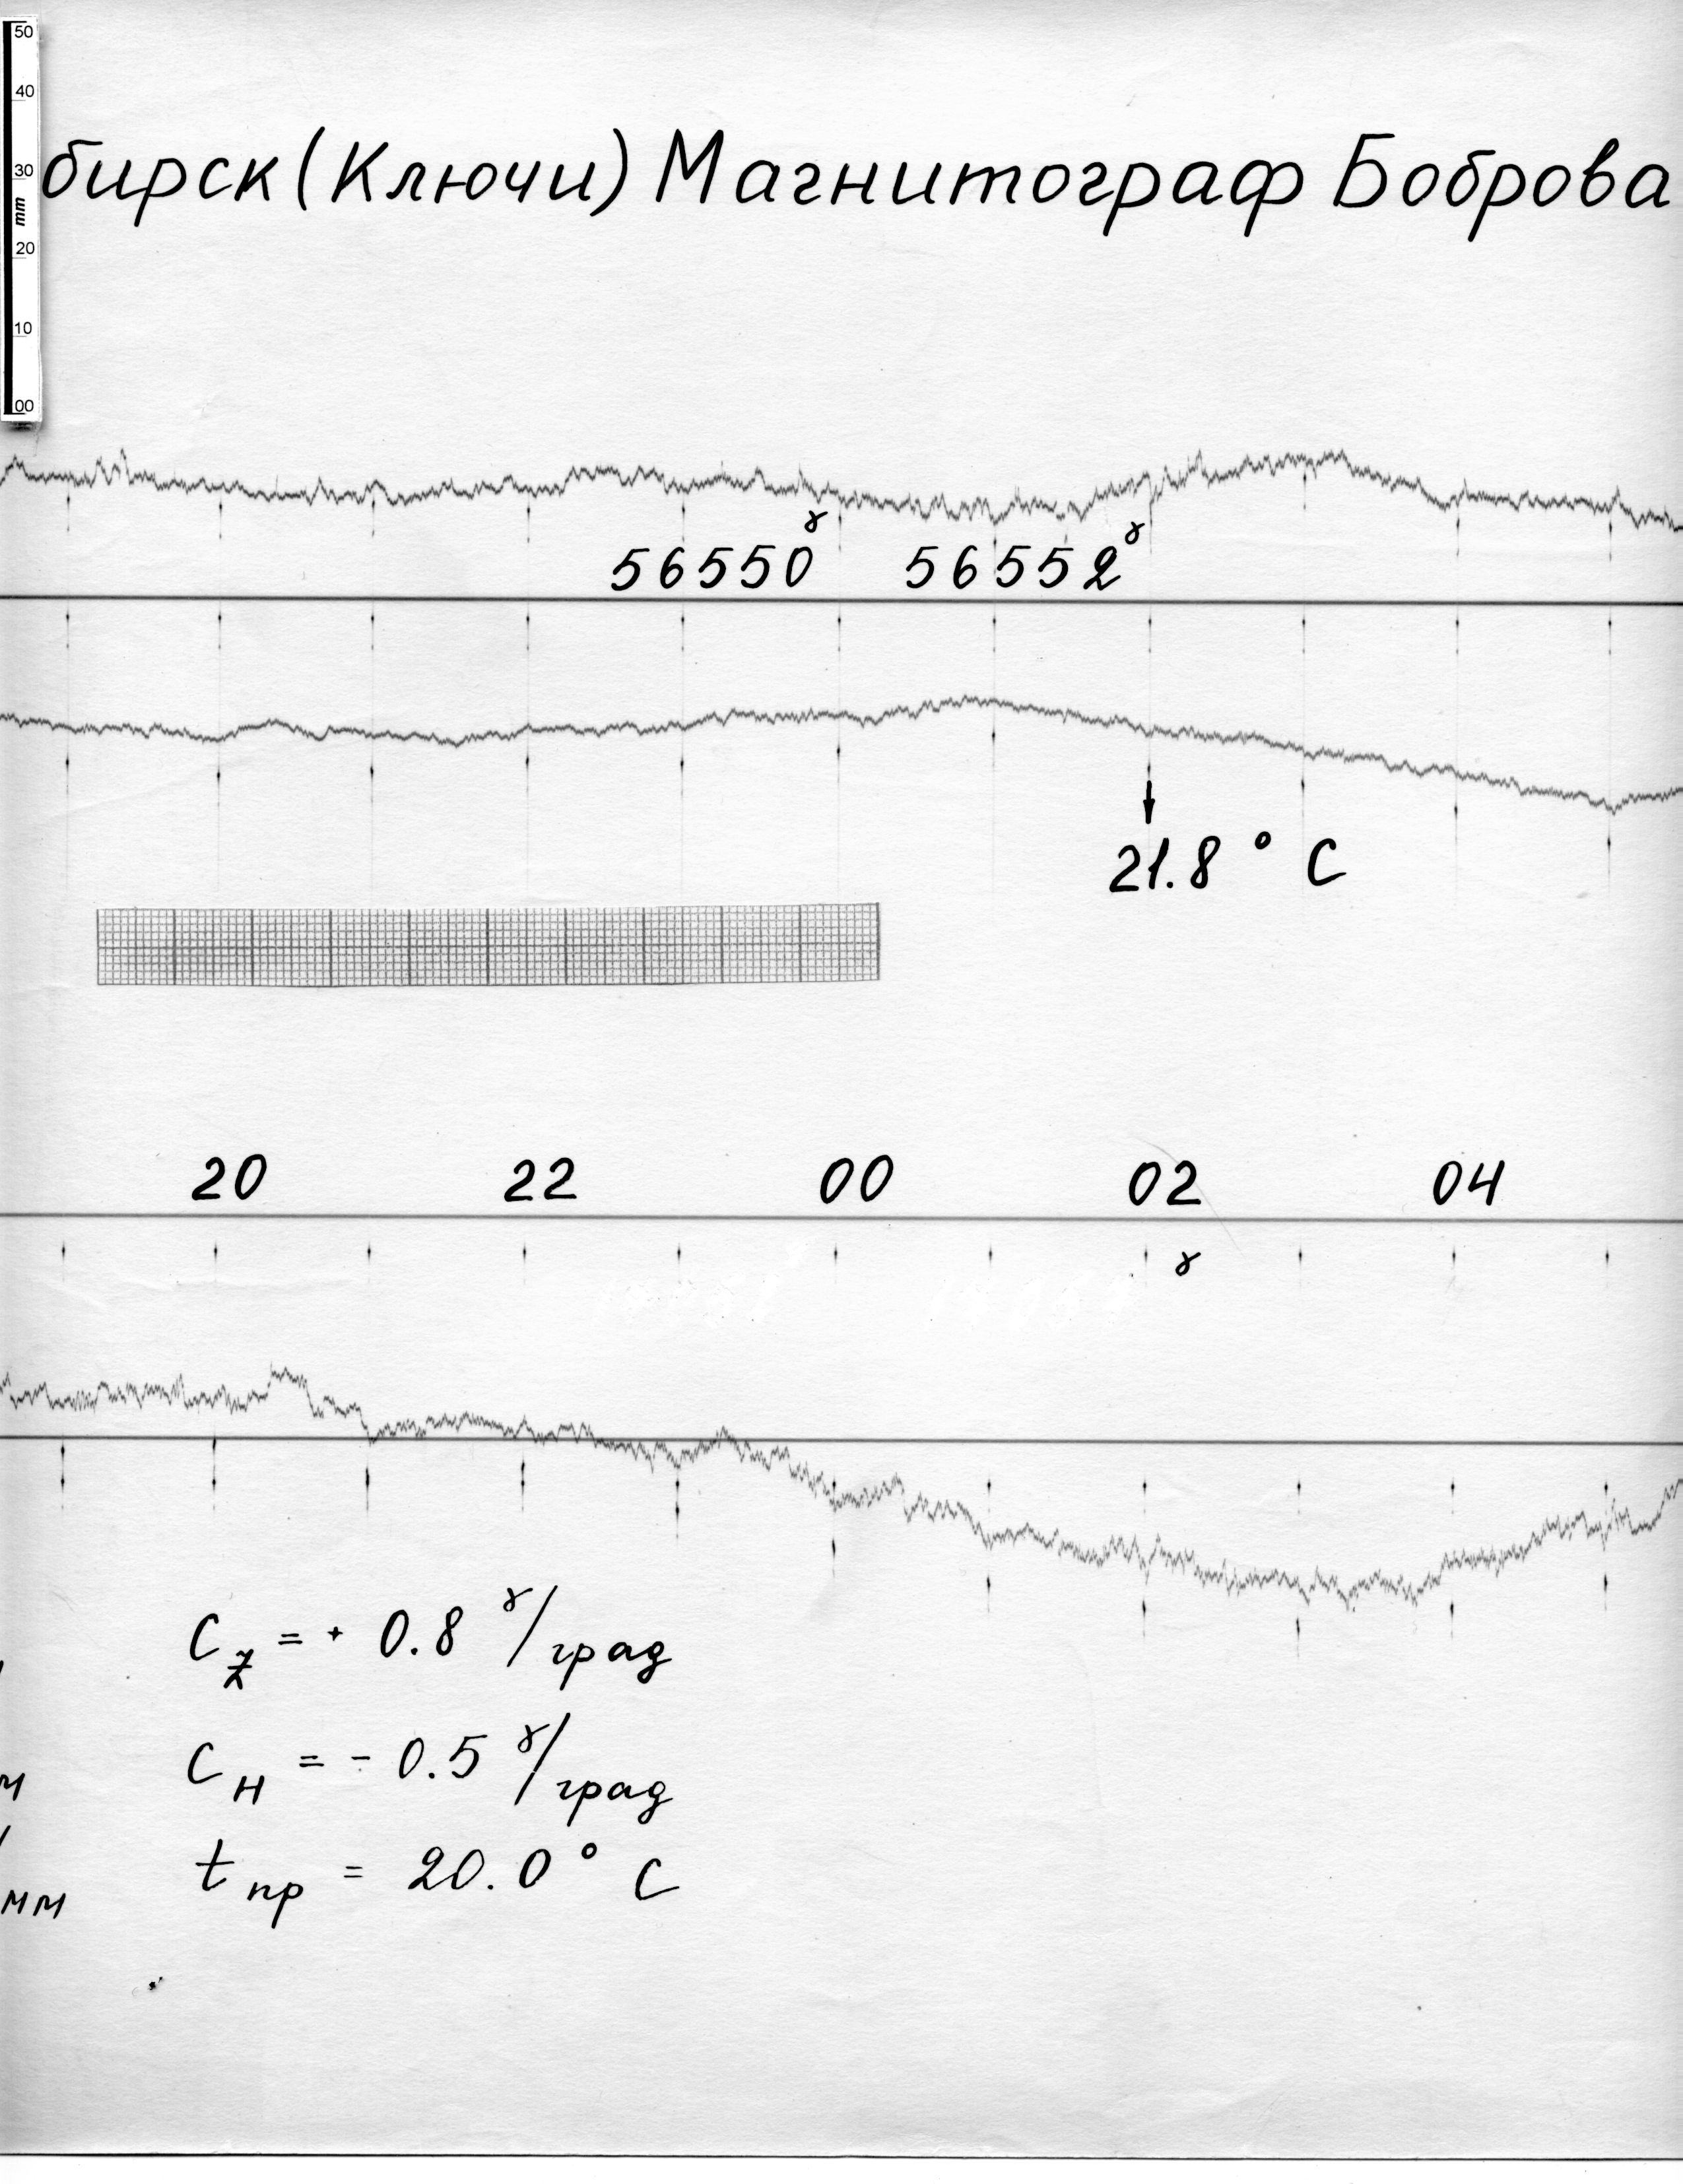 50
40
30
mm
20
10
00
бирск (Ключи) Магнитограф Боброва
56550ˠ 56552ˠ
21.8 ° C
20 22 00 02 04
ɣ
C_Z = + 0.8 ɣ/град
C_H = - 0.5 ɣ/град
м
t_пр = 20.0 ° C
мм